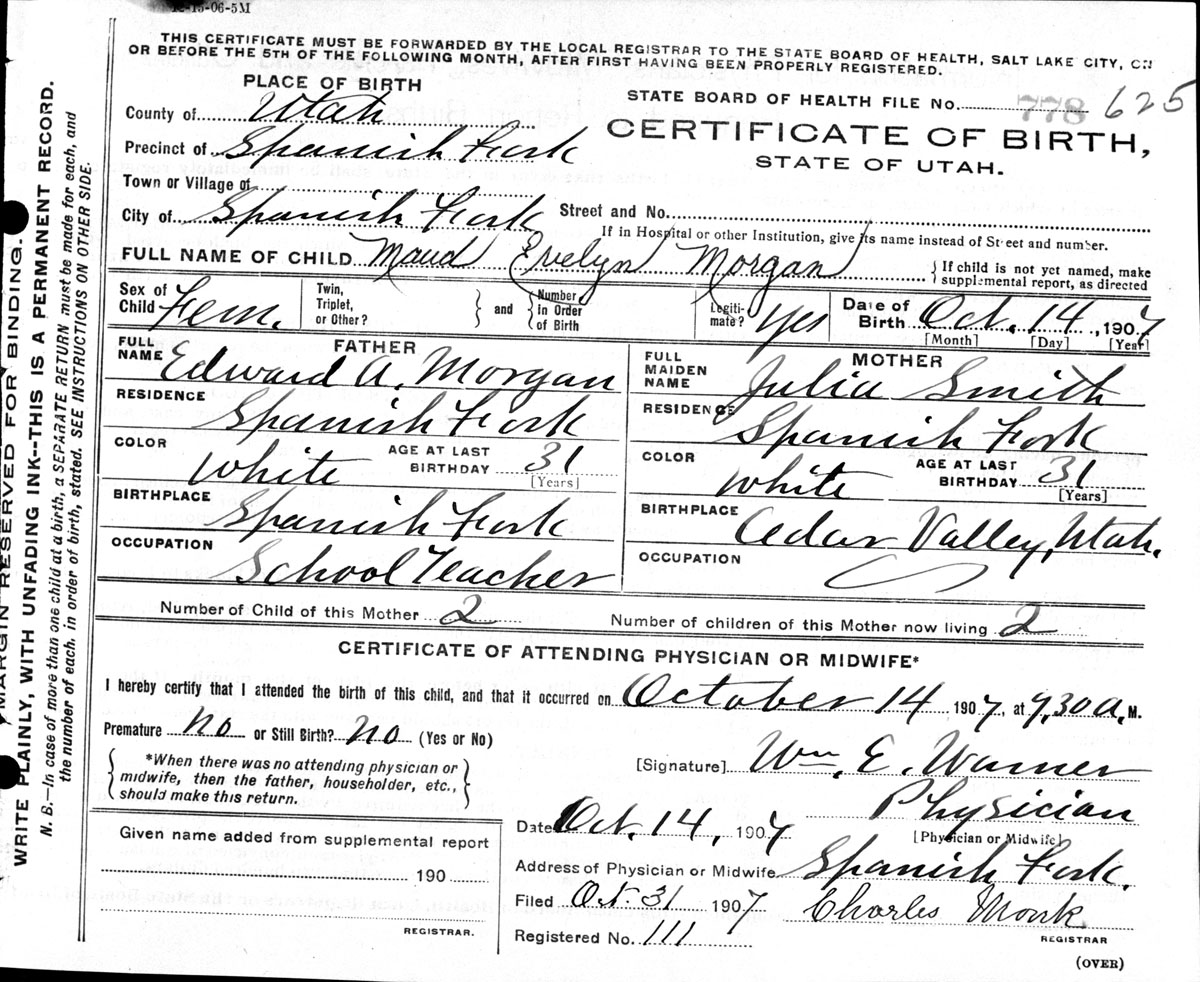 12-15-06-5M
THIS CERTIFICATE MUST BE FORWARDED BY THE LOCAL REGISTRAR TO THE STATE BOARD OF HEALTH, SALT LAKE CITY, ON
OR BEFORE THE 5TH OF THE FOLLOWING MONTH, AFTER FIRST HAVING BEEN PROPERLY REGISTERED.
PLACE OF BIRTH
STATE BOARD OF HEALTH FILE No. 778 625
County of Utah
CERTIFICATE OF BIRTH,
Precinct of Spanish Fork
STATE OF UTAH.
Town or Village of
City of Spanish Fork Street and No.
If in Hospital or other Institution, give its name instead of Street and number.
FULL NAME OF CHILD Maud Evelyn Morgan { If child is not yet named, make
supplemental report, as directed
Sex of Child Fem. Twin, Triplet, or Other? } and { Number in Order of Birth Legiti- mate? Yes Date of Birth Oct. 14, 1907
[Month] [Day] [Year]
FATHER MOTHER
FULL NAME Edward A. Morgan FULL MAIDEN NAME Julia Smith
RESIDENCE Spanish Fork RESIDENCE Spanish Fork
COLOR White AGE AT LAST BIRTHDAY 31 [Years] COLOR White AGE AT LAST BIRTHDAY 31 [Years]
BIRTHPLACE Spanish Fork BIRTHPLACE Cedar Valley, Utah.
OCCUPATION School Teacher OCCUPATION
Number of Child of this Mother 2 Number of children of this Mother now living 2
CERTIFICATE OF ATTENDING PHYSICIAN OR MIDWIFE*
I hereby certify that I attended the birth of this child, and that it occurred on October 14 1907, at 7,30 A, M.
Premature No or Still Birth? No (Yes or No)
*When there was no attending physician or
midwife, then the father, householder, etc.,
should make this return.
[Signature] Wm. E. Warner
Physician
[Physician or Midwife]
Date Oct. 14, 1907
Address of Physician or Midwife Spanish Fork.
Filed Oct. 31 1907 Charles Monk
REGISTRAR
Registered No. 111
(OVER)
Given name added from supplemental report
190
REGISTRAR.
MARGIN RESERVED FOR BINDING.
WRITE PLAINLY, WITH UNFADING INK--THIS IS A PERMANENT RECORD.
N. B.—In case of more than one child at a birth, a SEPARATE RETURN must be made for each, and
the number of each, in order of birth, stated. SEE INSTRUCTIONS ON OTHER SIDE.